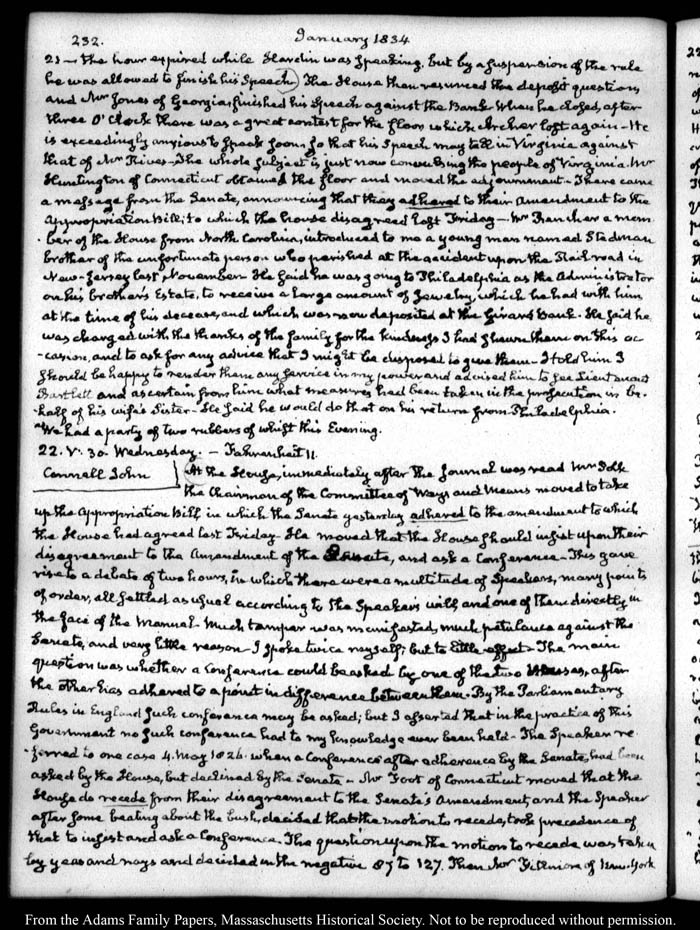 232.
January 1834
21— the hour expired while Hardin was speaking, but by a suspension of the rule
he was allowed to finish his Speech) The House then resumed the deposit question
and Mr Jones of Georgia finished his Speech against the Bank. When he closed, after
three O'Clock there was a great contest for the floor which Archer lost again— He
is exceedingly anxious to speak soon, so that his Speech may tell in Virginia against
that of Mr Rives— The whole subject is just now convulsing the people of Virginia. Mr
Huntington of Connecticut obtained the floor and moved the adjournment— There came
a message from the Senate, announcing that they adhered to their Amendment to the
Appropriation Bill, to which the house disagreed last Friday— Mr Rencher a mem
-ber of the House from North Carolina, introduced to me a young man named Stedman
brother of the unfortunate person who perished at the accident upon the Railroad in
New-Jersey last November. He said he was going to Philadelphia as the Administrator
on his brother's Estate, to receive a large amount of Jewelry, which he had with him
at the time of his decease, and which was now deposited at the Girard Bank. He said he
was charged with the thanks of the family for the kindness I had shewn them on this oc
-casion, and to ask for any advice that I might be disposed to give them— I told him I
should be happy to render them any service in my power and advised him to see Lieutenant
Bartlett and ascertain from him what measures had been taken in the prosecution in be-
half of his wife's Sister— He said he would do that on his return from Philadelphia.
We had a party of two rubbers of whist this Evening.
22. V. 30. Wednesday. — Fahrenheit 11.
Connell John
At the House, immediately after the Journal was read Mr Polk
the Chairman of the Committee of Ways and Means moved to take
up the Appropriation Bill in which the Senate yesterday adhered to the amendment to which
the House had agreed last Friday He moved that the House should insist upon their
disagreement to the Amendment of the Senate, and ask a Conference— This gave
rise to a debate of two hours, in which there were a multitude of Speakers, many points
of order, all settled as usual according to the Speaker's will and one of them directly in
the face of the Manual. Much temper was manifested, much petulance against the
Senate, and very little reason— I spoke twice myself; but to little effect— The main
question was whether a Conference could be asked by one of the two Houses, after
the other has adhered to a point in difference between them. By the Parliamentary
Rules in England such conference may be asked; but I asserted that in the practice of this
Government no such conference had to my knowledge ever been held— The Speaker re
-ferred to one case 4. May 1826. when a Conference after adherence by the Senate, had been
asked by the House, but declined by the Senate— Mr Foot of Connecticut moved that the
House do recede from their disagreement to the Senate's Amendment, and the Speaker
after some beating about the bush, decided that the motion to recede, took precedence of
that to insist and ask a Conference. The question upon the motion to recede was taken
by yeas and nays and decided in the negative 87 to 127. Then Mr Fillmore of New-York
From the Adams Family Papers, Massachusetts Historical Society. Not to be reproduced without permission.